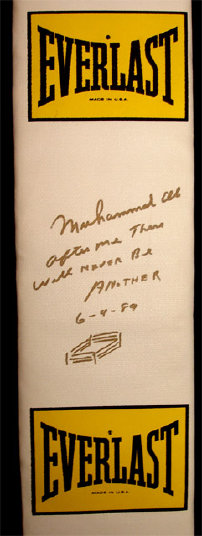 EVERLAST
MADE IN U.S.A.
Muhammad Ali
after me There
will NEVER Be
ANOTHER
6-9-89
EVERLAST
MADE IN U.S.A.